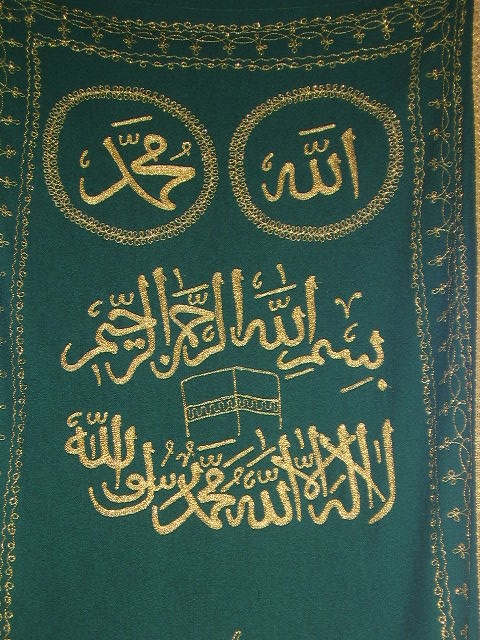 الله محمد
بسم الله الرحمن الرحيم
لا إله إلا الله محمد رسول الله